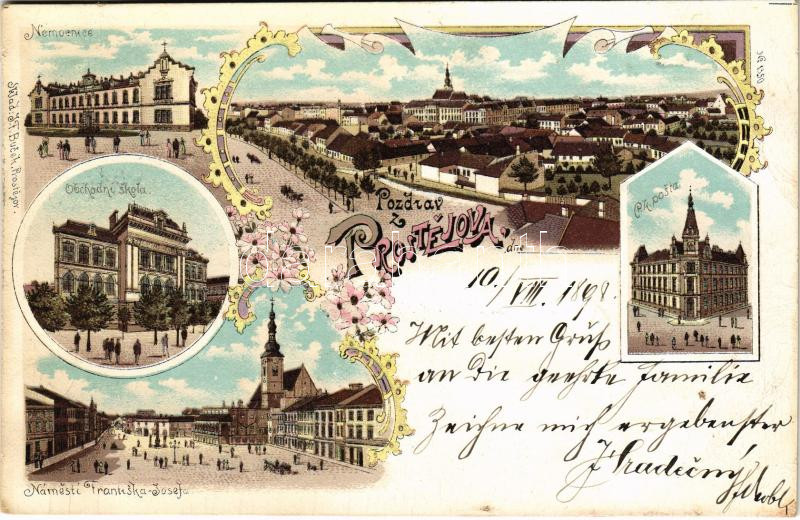 Nemocnice
Obchodní škola.
Náměstí Františka-Josefa
Pozdrav
z
PROSTĚJOVA.
dne
C. k. pošta
10./VIII. 1898.
Mit besten Gruß
an die geehrte Familie
Zeichne mich ergebenster
J. Hradečný